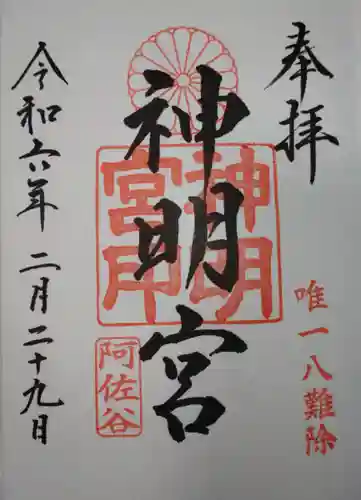 奉拝
唯一八難除
神明宮
神明宮印
阿佐谷
令和六年 二月二十九日